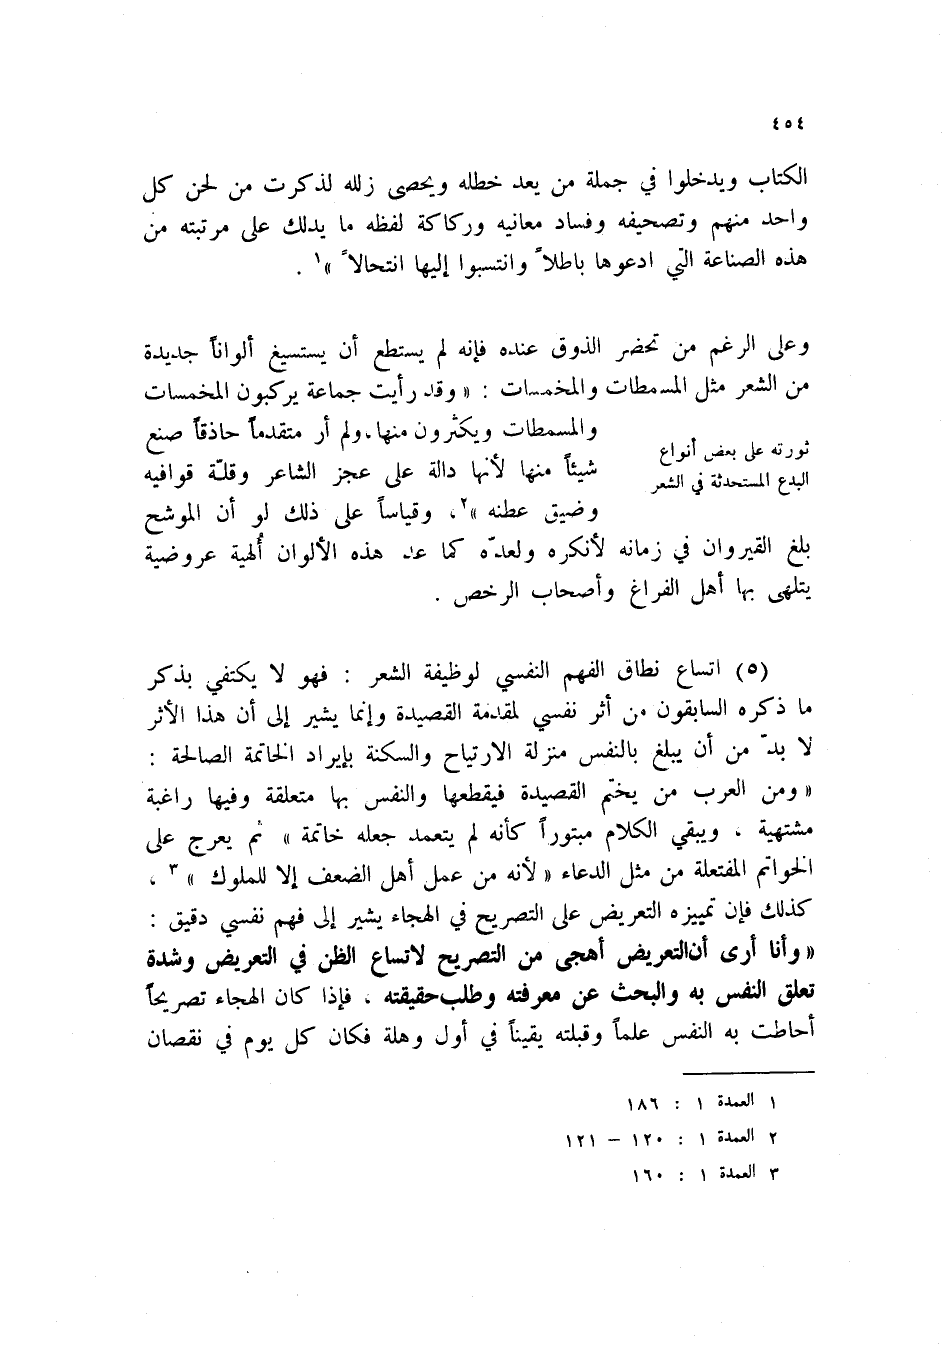 ٤٥٤
الكتاب ويدخلوا في جملة من يعد خطله ويحصى زلله لذكرت من لحن كل
واحد منهم وتصحيفه وفساد معانيه وركاكة لفظه ما يدلك على مرتبته من
هذه الصناعة التي ادعوها باطلاً وانتسبوا إليها انتحالاً »١ .
وعلى الرغم من تحضر الذوق عنده فإنه لم يستطع أن يستسيغ ألواناً جديدة
من الشعر مثل المسمطات والمخمسات : « وقد رأيت جماعة يركبون المخمسات
والمسمطات ويكثرون منها، ولم أر متقدماً حاذقاً صنع
شيئاً منها لأنها دالة على عجز الشاعر وقلّة قوافيه
وضيق عطنه »٢، وقياساً على ذلك لو أن الموشح
ثورته على بعض أنواع
البدع المستحدثة في الشعر
بلغ القيروان في زمانه لأنكره ولعدّه كما عد هذه الألوان أُلهية عروضية
يتلهى بها أهل الفراغ وأصحاب الرخص .
(٥) اتساع نطاق الفهم النفسي لوظيفة الشعر : فهو لا يكتفي بذكر
ما ذكره السابقون من أثر نفسي لمقدمة القصيدة وإنما يشير إلى أن هذا الأثر
لا بدّ من أن يبلغ بالنفس منزلة الارتياح والسكنة بإيراد الخاتمة الصالحة :
« ومن العرب من يختم القصيدة فيقطعها والنفس بها متعلقة وفيها راغبة
مشتهية ، ويبقي الكلام مبتوراً كأنه لم يتعمد جعله خاتمة » ثم يعرج على
الخواتم المفتعلة من مثل الدعاء « لأنه من عمل أهل الضعف إلا للملوك »٣ ،
كذلك فإن تمييزه التعريض على التصريح في الهجاء يشير إلى فهم نفسي دقيق :
« وأنا أرى أن التعريض أهجى من التصريح لاتساع الظن في التعريض وشدة
تعلق النفس به والبحث عن معرفته وطلب حقيقته ، فإذا كان الهجاء تصريحاً
أحاطت به النفس علماً وقبلته يقيناً في أول وهلة فكان كل يوم في نقصان
١ العمدة ١ : ١٨٦
٢ العمدة ١ : ١٢٠ – ١٢١
٣ العمدة ١ : ١٦٠